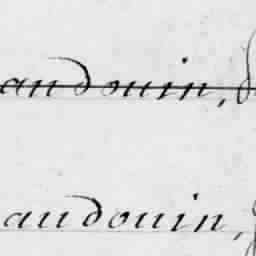 audouin,
audouin,